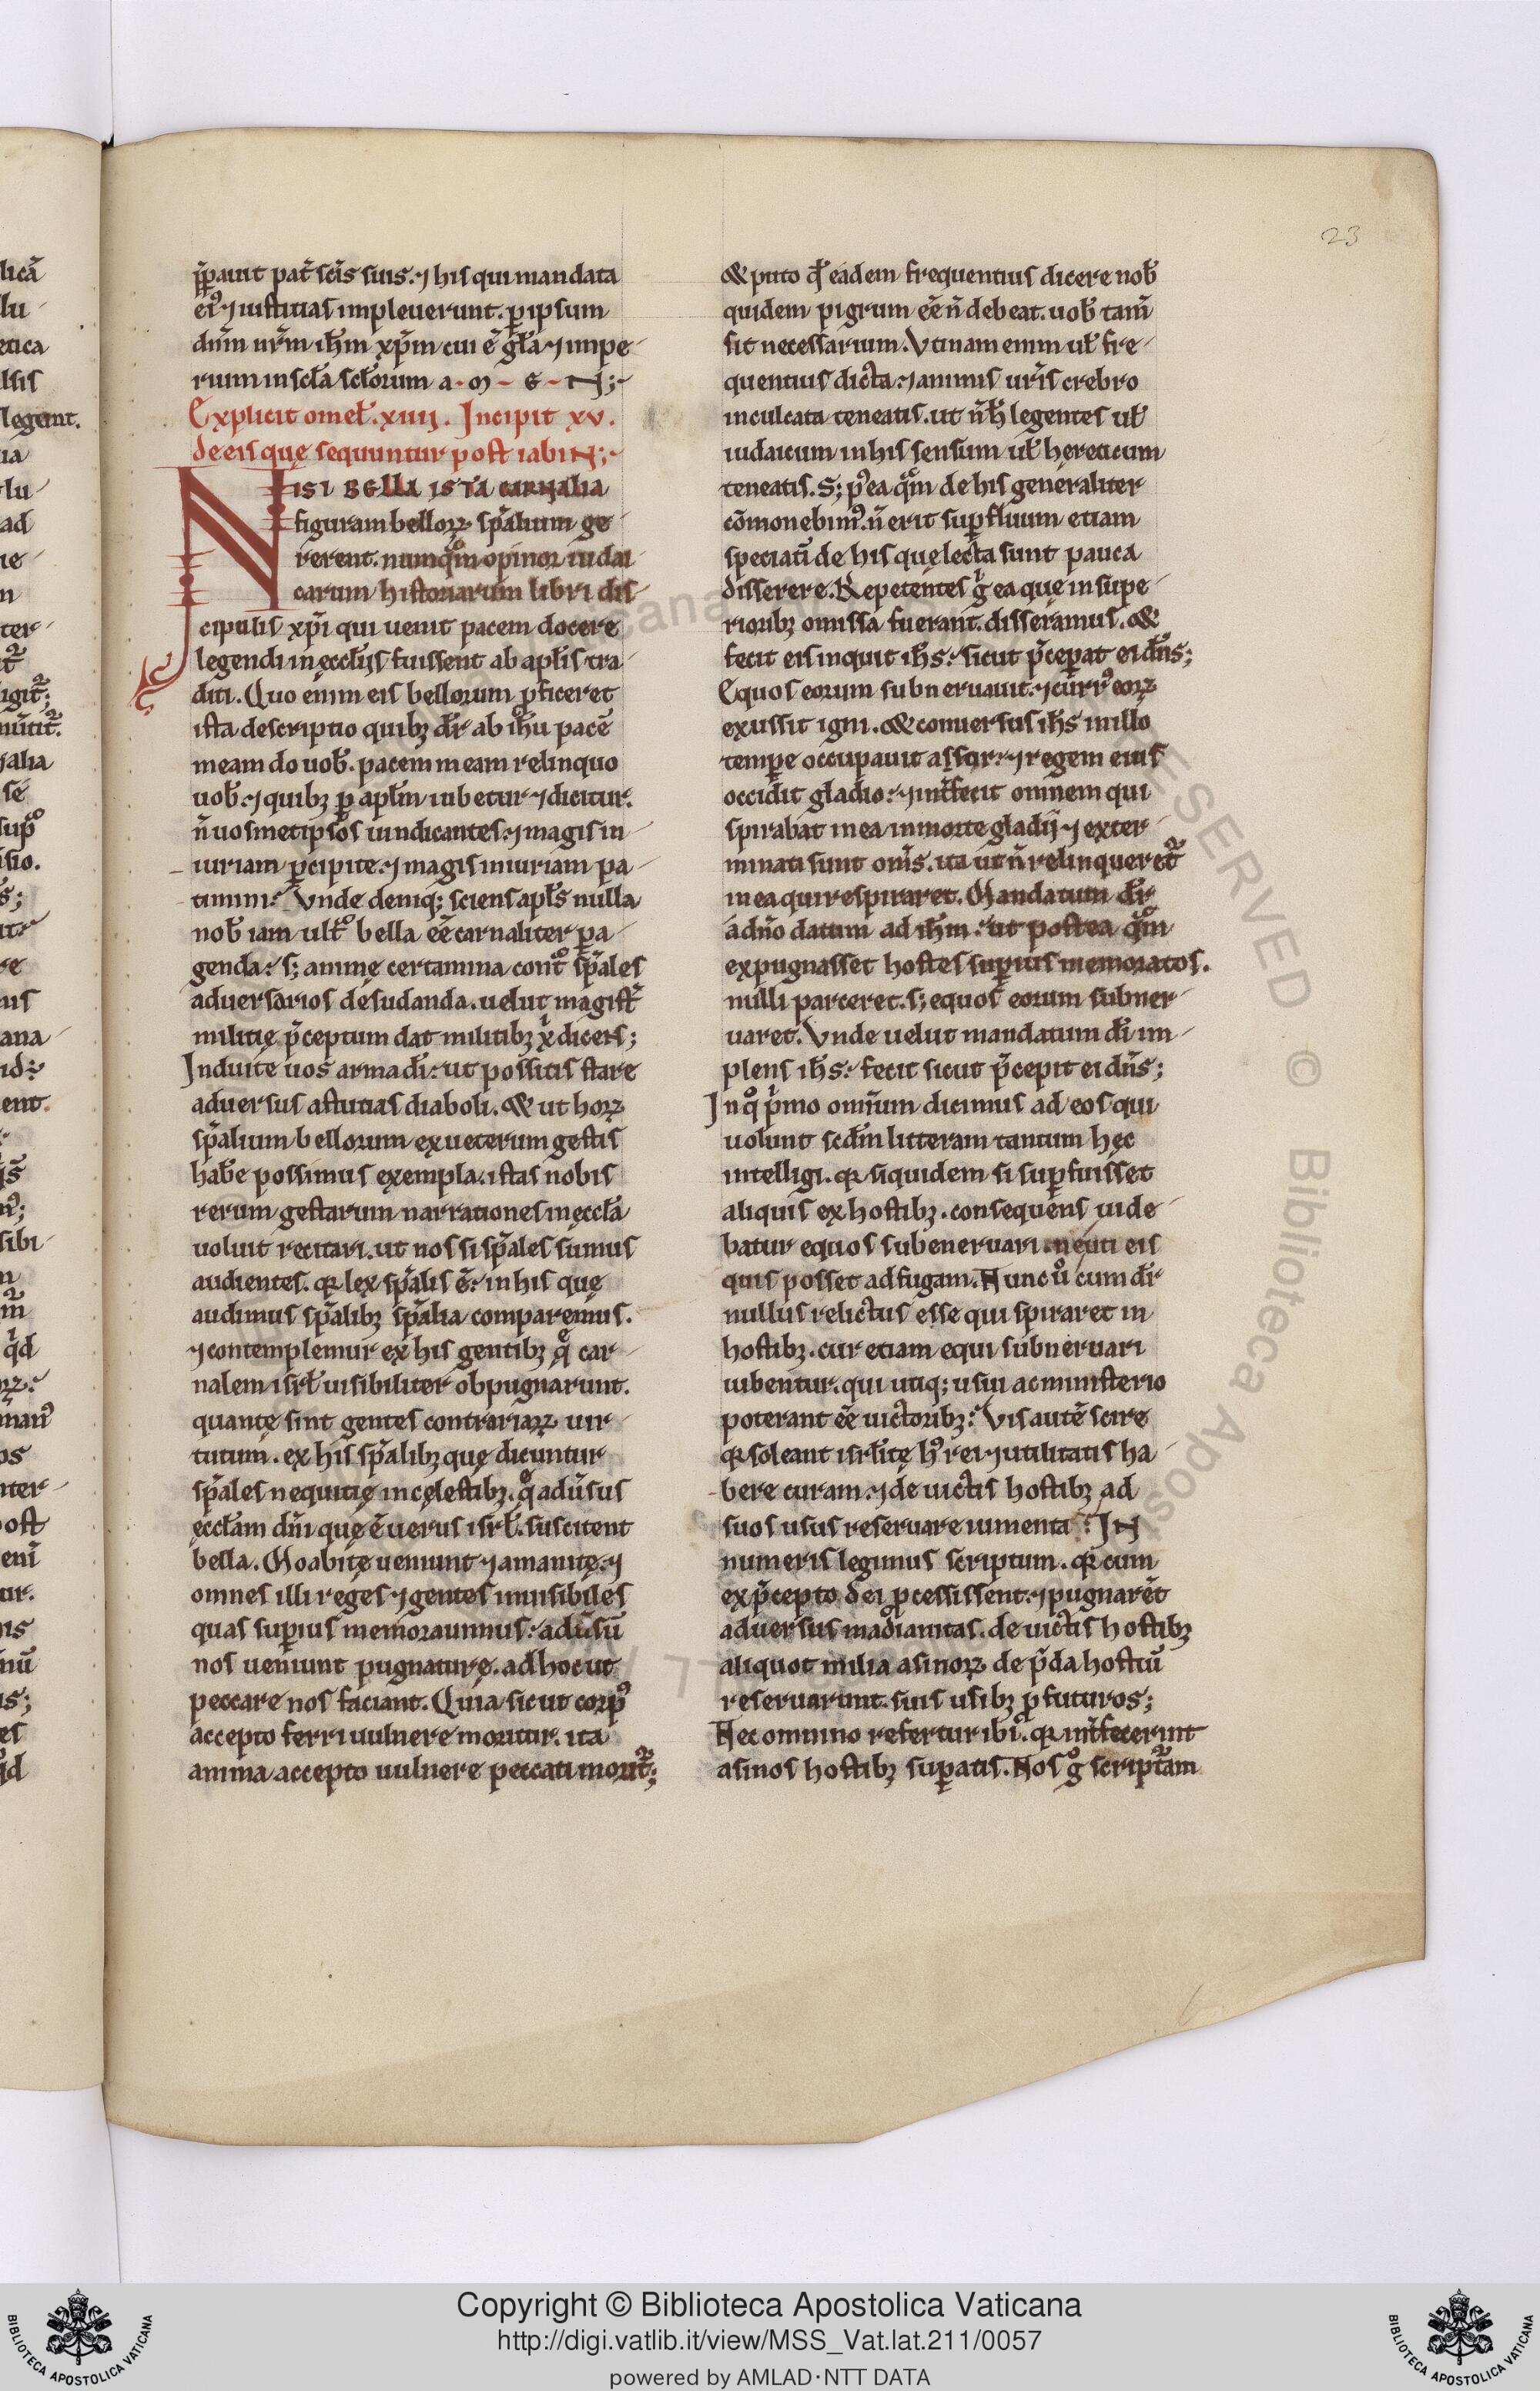 23
p̄pauit pat̄ sc̄is suis. ⁊ his qui mandata
eiꝰ ⁊ iustitias impleuerunt. ꝑ ipsum
dn̄m nr̄m ih̄m xp̄m cui ē gl̄a ⁊ impe-
rium in scl̄a scl̄orum a·m·e·N;
Explicit omel̄. xiiij. Incipit xv.
de eis que sequuntur post iabiN;
NISI BELLA ISTA CARNALIA
figuram belloꝝ sp̄alium ge-
rerent. numq̄m opinor iudai-
carum historiarum libri dis-
cipulis xp̄i qui uenit pacem docere
legendi in ęccl̄ijs fuissent ab apl̄is tra-
diti. Quo enim eis bellorum ꝓficeret
ista descriptio quibꝫ dr̄ ab ih̄u pacē
meam do uob̄. pacem meam relinquo
uob̄. ⁊ quibꝫ ꝑ apl̄m iubetur ⁊ dicitur.
n̄ uosmetipsos uindicantes. ⁊ magis in-
iuriam ꝑcipite. ⁊ magis iniuriam pa-
timini. Vnde deniq; sciens apl̄s nulla
nob̄ iam ult̄ bella eē carnaliter ꝑa-
genda. s; animę certamina cont̄ sp̄ales
aduersarios desudanda. uelut magist̄
militię p̄ceptum dat militibꝫ x̄ dicens;
Induite uos arma dī. ut possitis stare
aduersus astutias diaboli. & ut hoꝝ
sp̄alium bellorum ex ueterum gestis
hab̄e possimus exempla. istas nobis
rerum gestarum narrationes in ęccl̄a
uoluit recitari. ut nos si sp̄ales sumus
audientes. qꝛ lex sp̄alis ē. in his quę
audimus sp̄alibꝫ sp̄alia comparemus.
⁊ contemplemur ex his gentibꝫ q̄ car-
nalem isrl̄ uisibiliter obpugnarunt.
quantę sint gentes contrariaꝝ uir-
tutum. ex his sp̄alibꝫ quę dicuntur
sp̄ales nequitię in cęlestibꝫ. q̄ adu̾sus
ęccl̄am dn̄i quę ē uerus isrl̄. suscitent
bella. Moabitę ueniunt ⁊ amanitę. ⁊
omnes illi reges ⁊ gentes inuisibiles
quas suꝑius memorauimus. adu̾sū
nos ueniunt pugnaturę. ad hoc ut
peccare nos faciant. Quia sicut corpꝰ
accepto ferri uulnere moritur. ita
anima accepto uulnere peccati morit̄;
& puto qd̄ eadem frequentius dicere nob̄
quidem pigrum eē n̄ debeat. uob̄ tam̄
sit necessarium. Vtinam enim ul̄ fre-
quentius dicta ⁊ animis ur̄is crebro
inculcata teneatis. ut n̄ h̄ legentes ul̄
iudaicum in his sensum ul̄ hęreticum
teneatis. S; p̄ea qm̄ de his generaliter
cōmonebimꝰ. n̄ erit suꝑfluum etiam
speciati̅ de his quę lecta sunt pauca
disserere. Repetentes g̾ ea que in supe-
rioribꝫ omissa fuerant. disseramus. &
fecit eis inquit ih̄s. sicut p̄ceꝑat ei dn̄s;
Equos eorum subneruauit. ⁊ currꝰ eoꝝ
exussit igni. & conuersus ih̄s in illo
temꝑe occupauit assor. ⁊ regem eius
occidit gladio. ⁊ int̄fecit omnem qui
spirabat in ea in morte gladij. ⁊ exter-
minati sunt om̄s. ita ut n̄ relinqueret̄
in ea qui respiraret. Mandatum dr̄
a dn̄o datum ad ih̄m. ut postea qm̄
expugnasset hostes suꝑius memoratos.
nulli parceret. s; equos eorum subner-
uaret. Vnde uelut mandatum dī im-
plens ih̄s. fecit sicut p̄cepit ei dn̄s;
In q̊ p̄mo omnium dicimus ad eos qui
uolunt scdm̄ litteram tantum hęc
intelligi. qꝛ siquidem si suꝑfuisset
aliquis ex hostibꝫ. consequens uide-
batur equos subeneruari. ne uti eis
quis posset ad fugam. Nunc ů cum dr̄
nullus relictus esse qui spiraret in
hostibꝫ. cur etiam equi subneruari
iubentur. qui utiq; usui ac ministerio
poterant eē uictoribꝫ. Vis autē scire
qꝛ soleant isrl̄itę hꝰ rei ⁊ utilitatis ha-
bere curam. ⁊ de uictis hostibꝫ ad
suos usus reseruare iumenta. IN
numeris legimus scriptum. qꝛ cum
ex p̄cepto dei ꝓcessissent. ⁊ pugnarēt
aduersus madianitas. de uictis hostibꝫ
aliquot milia asinoꝝ de p̄da hostiū
reseruarunt. suis usibꝫ ꝓfuturos;
Nec omnino refertur ibi. qꝛ int̄fecerint
asinos hostibꝫ suꝑatis. Nos g̊ scripturam
Copyright © Biblioteca Apostolica Vaticana
http://digi.vatlib.it/view/MSS_Vat.lat.211/0057
powered by AMLAD·NTT DATA
BIBLIOTECA APOSTOLICA VATICANA
BIBLIOTECA APOSTOLICA VATICANA